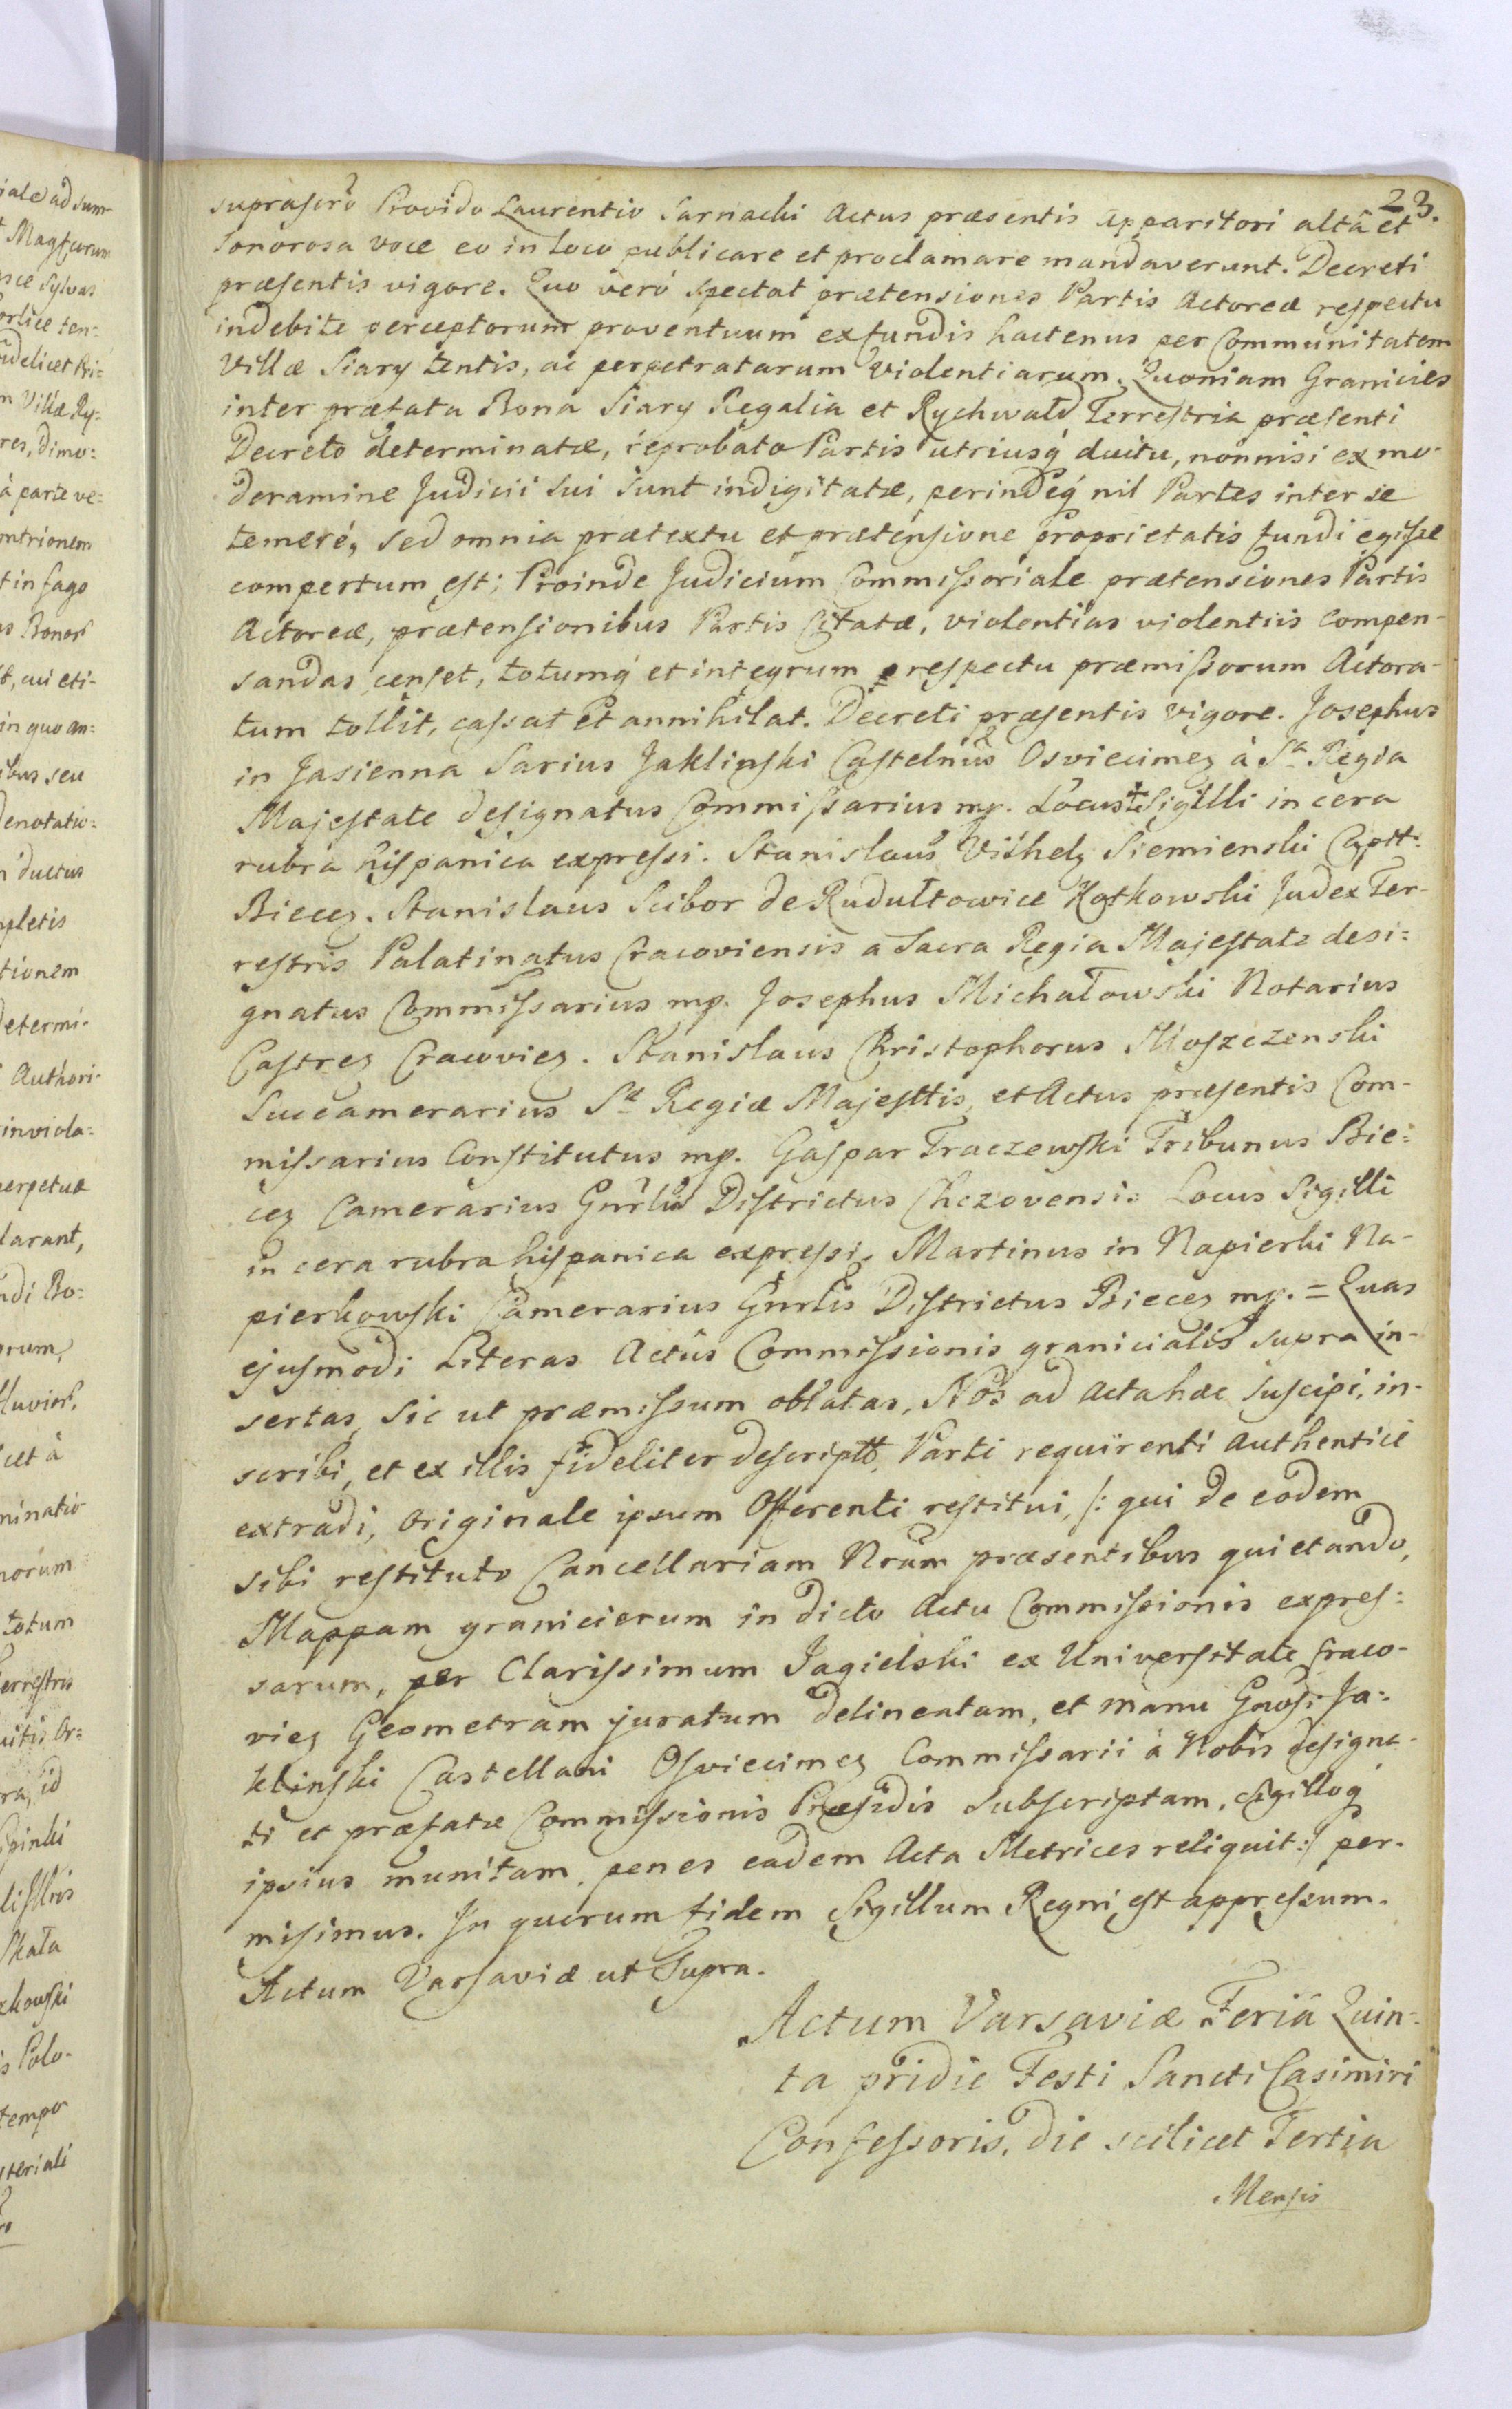 23.
suprascrō Provido Laurentio Sarnacki Actus præsentis Apparitori altâ et
sonorosa voce eo in loco publicare et proclamare mandaverunt. Decreti
præsentis vigore. Quo veró spectat prætensiones Partis Actoreæ respectu
indebite perceptorum proventuum ex fundis hactenus per Communitatem
Villæ Siary tentis, ac perpetratarum violentiarum. Quoniam Granicies
inter præfata Bona Siary Regalia et Rychwałd Terrestria præsenti
Decreto determinatæ, reprobato Partis utriusq́ ductu, nonnisi ex mo-
deramine Judicii sui sunt indigitatæ, perindeq́ nil Partes inter se
temeré, sed omnia prætextu et prætensione proprietatis fundi egisse
compertum est; Proinde Judicium Commissoriale prætensiones Partis
Actoreæ, prætensionibus Partis Citatæ, violentias violentiis compen-
sandas censet, totumq́ et integrum respectu præmissorum Actora-
tum tollit, cassat et annihilat. Decreti præsentis vigore. Josephus
in Jasienna Sarius Jaklinski Castelnūs Osviecimez à S.a Regia
Majestate designatus Commissarius mp. Locus + Sigilli in cera
rubra hispanica expressi. Stanislaus Vilhelz Siemienski Captt.
Biecez. Stanislaus Scibor de Rudułtowice Kotkowski Judex Ter-
restris Palatinatus Cracoviensis a Sacra Regia Majestate desi=
gnatus Commissarius mp. Josephus Michałowski Notarius
Castrez Cracoviez. Stanislaus Christophorus Moszczenski
Succamerarius S.æ Regiæ Majesttis, et Actus præsentis Com-
missarius Constitutus mp. Gaspar Traczewski Tribunus Bie=
cez Camerarius Gnrlis Districtus Chczovensis Locus Sigilli
in cera rubra hispanica expressi. Martinus in Napierki Na-
pierkowski Camerarius Gnrlis Districtus Biecez mp. = Quas
ejusmodi Literas Actûs Commissionis granicialis supra in-
sertas, sic ut præmissum oblatas, Nos ad Acta hæc suscipi, in-
scribi, et ex illis fideliter descriptt, Parti requirenti authenticè
extradi, originale ipsum Offerenti restitui, /: qui de eodem
sibi restituto Cancellariam Nrām præsentibus quietando,
Mappam granicierum in dicto Actu Commissionis expres=
sarum, per Clarissimum Jagielski ex Universitate Craco-
viez Geometram juratum delineatam, et manu Gnosi Ja=
klinski Castellani Osviecimez Commissarii à Nobis designa-
ti et præfatæ Commissionis Præsidis subscriptam, sigilloq́
ipsius munitam, penes eadem Acta Metrices reliquit :/ per-
misimus. In quorum fidem Sigillum Regni est appressum.
Actum Varsaviæ ut Supra.
Actum Varsaviæ Feriâ Quin=
ta pridie Festi Sancti Casimiri
Confessoris, die scilicet Tertia
Mensis